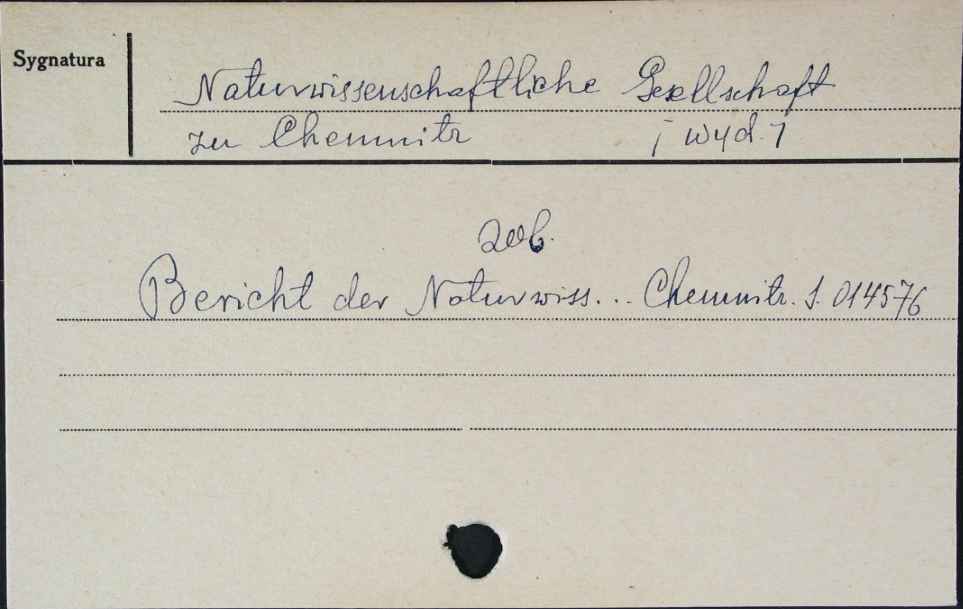 Sygnatura
Naturwissenschaftliche Gesellschaft
zu Chemnitz [wyd.]
zob.
Bericht der Naturwiss... Chemnitz. S. 014576